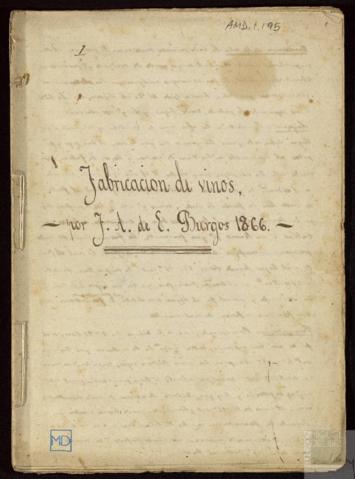 AMD.1.195
1
Fabricacion de vinos,
— por J. A. de E. Burgos 1866. —
MD